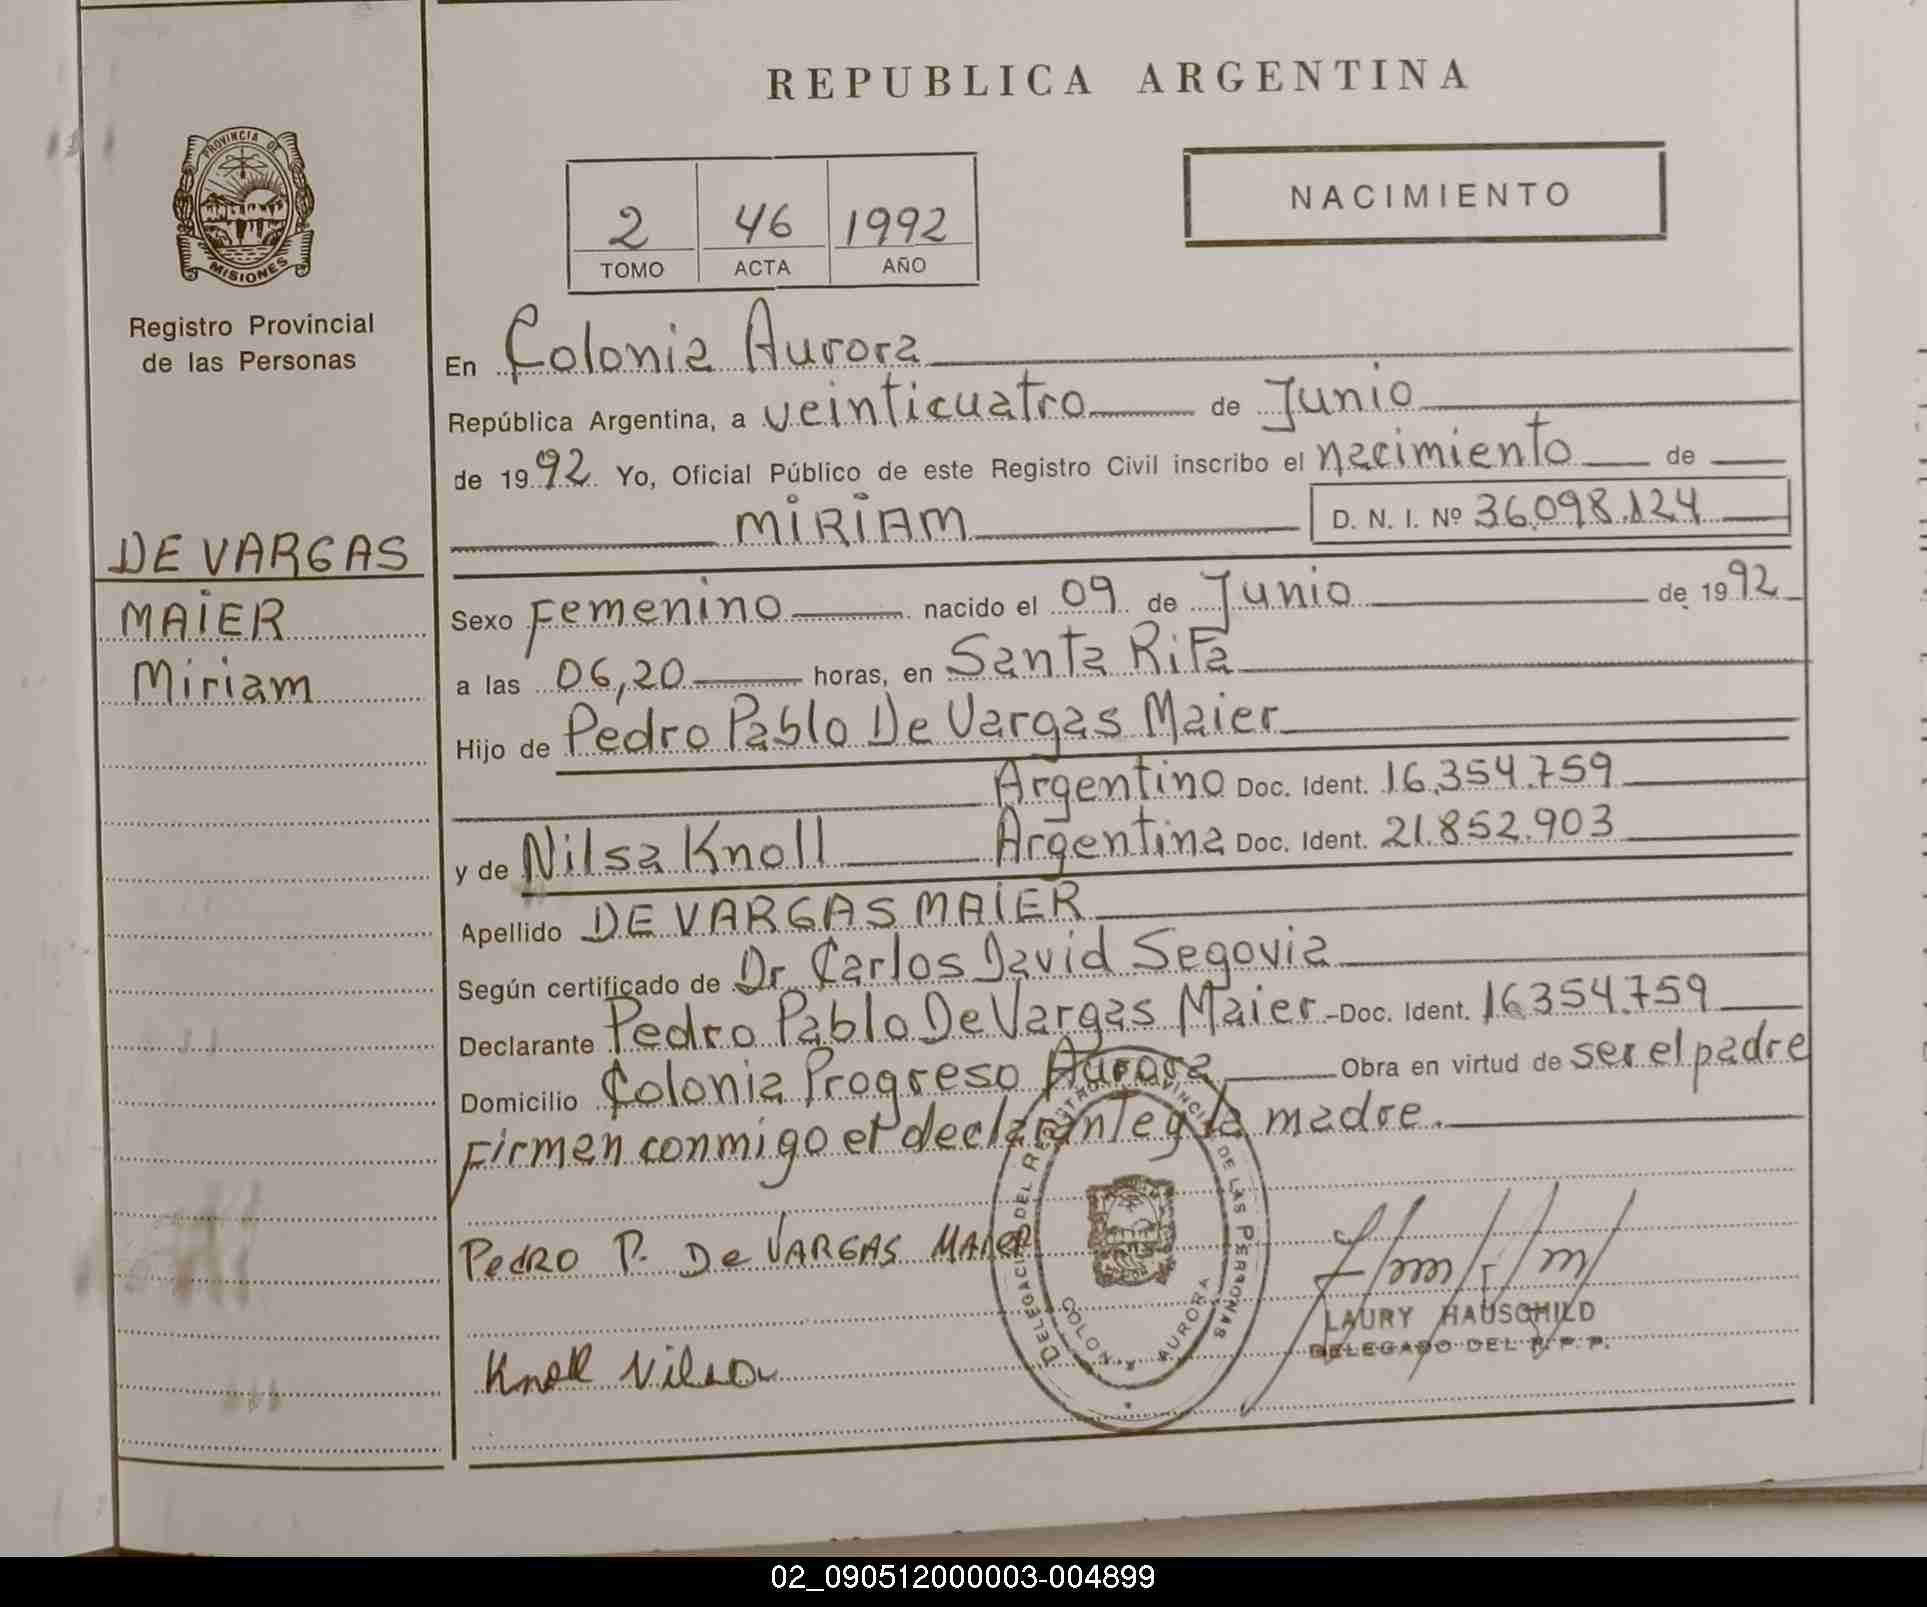 REPUBLICA ARGENTINA
PROVINCIA DE
MISIONES
Registro Provincial
de las Personas
2 46 1992
TOMO ACTA AÑO
NACIMIENTO
DE VARGAS
MAIER
Miriam
En Colonia Aurora
República Argentina, a veinticuatro de Junio
de 1992 Yo, Oficial Público de este Registro Civil inscribo el nacimiento de
MIRIAM D. N. I. Nº 36.098.124
Sexo Femenino nacido el 09 de Junio de 1992
a las 06,20 horas, en Santa Rita
Hijo de Pedro Pablo De Vargas Maier
Argentino Doc. Ident. 16.354.759
y de Nilsa Knoll Argentina Doc. Ident. 21.852.903
Apellido DE VARGAS MAIER
Según certificado de Dr. Carlos David Segovia
Declarante Pedro Pablo De Vargas Maier - Doc. Ident. 16354.759
Domicilio Colonia Progreso Aurora Obra en virtud de ser el padre
Firman conmigo el declarante y la madre.
Pedro P. De VARGAS MAIER
Knoll Nilsa
DELEGACION DEL REGISTRO PROVINCIAL DE LAS PERSONAS
COLONIA AURORA
LAURY HAUSCHILD
DELEGADO DEL R. P. P.
02_090512000003-004899